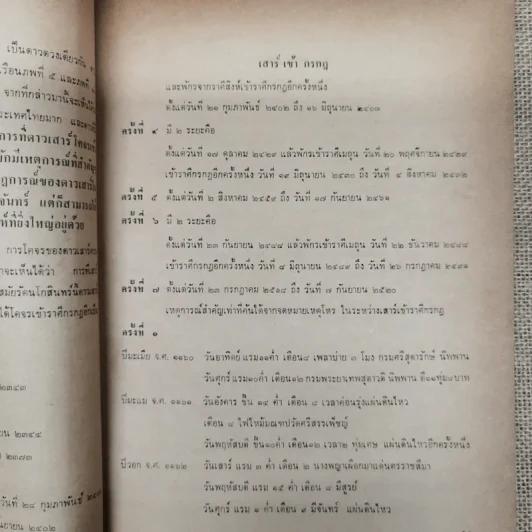 เป็นดาวดวงเดียวกัน
เรือนภพที่ ๕ และภพที่
จากที่กล่าวมานี้จะเห็นได้
ประเทศไทยมาก
การที่ดาวเสาร์โคจร
มักมีเหตุการณ์ที่สำคัญ
ปรากฏการณ์ของดาวเสาร์
จันทร์ แต่ก็สามารถ
ที่ยิ่งใหญ่อยู่ด้วย
การโคจรของดาวเสาร์
จะเห็นได้ว่า การที่เสาร์
สมัยรัตนโกสินทร์นี้ดาวเสาร์
ได้โคจรเข้าราศีกรกฎอีก
๒๓๔๓
๒๓๔๔
๒๓๗๓
วันที่ ๒๔ กุมภาพันธ์
กันยายน ๒๔๐๒
เสาร์ เข้า กรกฎ
และพักรจากราศีสิงห์เข้าราศีกรกฎอีกครั้งหนึ่ง
ตั้งแต่วันที่ ๒๑ กุมภาพันธ์ ๒๔๐๒ ถึง ๑๖ มิถุนายน ๒๔๐๓
ครั้งที่ ๔ มี ๒ ระยะคือ
ตั้งแต่วันที่ ๑๗ ตุลาคม ๒๔๒๙ แล้วพักรเข้าราศีเมถุน วันที่ ๒๐ พฤศจิกายน ๒๔๒๙
เข้าราศีกรกฎอีกครั้งหนึ่ง วันที่ ๑๓ มิถุนายน ๒๔๓๐ ถึง วันที่ ๔ สิงหาคม ๒๔๓๒
ครั้งที่ ๕ ตั้งแต่วันที่ ๒ สิงหาคม ๒๔๕๙ ถึง วันที่ ๑๗ กันยายน ๒๔๖๑
ครั้งที่ ๖ มี ๒ ระยะคือ
ตั้งแต่วันที่ ๒๓ กันยายน ๒๔๘๘ แล้วพักรเข้าราศีเมถุน วันที่ ๒๒ ธันวาคม ๒๔๘๘
เข้าราศีกรกฎอีกครั้งหนึ่ง วันที่ ๘ มิถุนายน ๒๔๘๙ ถึง วันที่ ๒๖ กรกฎาคม ๒๔๙๑
ครั้งที่ ๗ ตั้งแต่วันที่ ๒๓ กรกฎาคม ๒๕๑๘ ถึง วันที่ ๗ กันยายน ๒๕๒๐
เหตุการณ์สำคัญเท่าที่ค้นได้จากจดหมายเหตุโหร ในระหว่างเสาร์เข้าราศีกรกฎ
ครั้งที่ ๑
ปีมะเมีย จ.ศ. ๑๑๖๐ วันอาทิตย์ แรม๑๑ค่ำ เดือน๘ เพลาบ่าย ๓ โมง กรมศรีสุดารักษ์ นิพพาน
วันศุกร์ แรม๑๐ค่ำ เดือน๑๒ กรมพระยาเทพสุดาวดี นิพพาน ตี๑๑ทุ่ม๘บาท
ปีมะแม จ.ศ. ๑๑๖๑ วันอังคาร ขึ้น ๑๔ ค่ำ เดือน ๘ เวลาค่อนรุ่งแผ่นดินไหว
เดือน ๘ ไฟไหม้มณฑปวัดศรีสรรเพ็ชญ์
วันพฤหัสบดี ขึ้น๑๐ค่ำ เดือน๑๒ เวลา๒ ทุ่มเศษ แผ่นดินไหวอีกครั้งหนึ่ง
ปีวอก จ.ศ. ๑๑๖๒ วันเสาร์ แรม ๓ ค่ำ เดือน ๒ นางพญาเผือกมาแต่นครราชสีมา
วันพฤหัสบดี แรม ๑๕ ค่ำ เดือน ๘ มีสูรย์
วันศุกร์ แรม ๑ ค่ำ เดือน ๙ มีจันทร์ แผ่นดินไหว